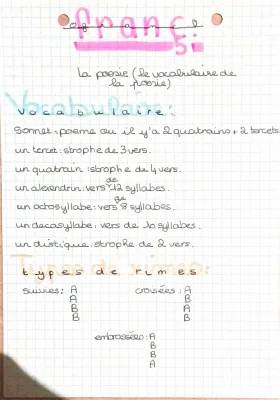 franç.
oral
5
La poésie (le vocabulaire de
la poésie)
Vocabulaire:
Sonnet: poème ou il y'a 2 quatrains + 2 tercets
un tercet: strophe de 3 vers.
un quatrain: strophe de 4 vers.
un alexendrin: vers de 12 syllabes.
un octosyllabe: vers de 8 syllabes.
un decasyllabe: vers de 10 syllabes.
un distique: strophe de 2 vers.
Types de rimes:
suivies: A croisées: A
A B
B A
B B
embrassées: A
B
B
A